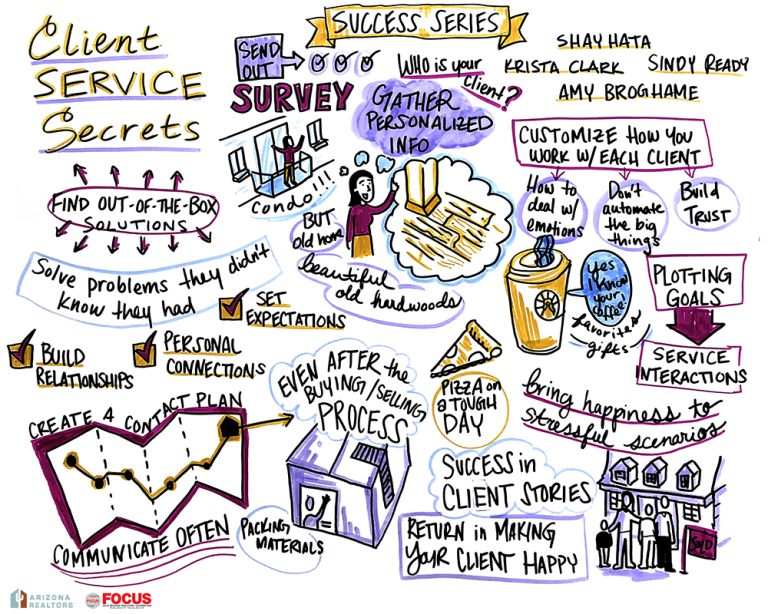 Client
SERVICE
Secrets
SUCCESS SERIES
SEND
OUT
SURVEY
WHO is your
client?
GATHER
PERSONALIZED
INFO
SHAY HATA
KRISTA CLARK
SINDY READY
AMY BROGHAME
CUSTOMIZE HOW YOU
WORK W/ EACH CLIENT
How to
deal w/
emotions
Don't
automate
the big
things
Build
TRUST
FIND OUT-OF-THE-BOX
SOLUTIONS
condo!!!
BUT
old home
beautiful
old hardwoods
Solve problems they didn't
know they had
SET
EXPECTATIONS
BUILD
RELATIONSHIPS
PERSONAL
CONNECTIONS
yes
I know
your
coffee!
favorites
gifts
PLOTTING
GOALS
SERVICE
INTERACTIONS
bring happiness to
stressful scenarios
PIZZA on
a TOUGH
DAY
EVEN AFTER the
BUYING/SELLING
PROCESS
CREATE 4 CONTACT PLAN
COMMUNICATE OFTEN
PACKING
MATERIALS
SUCCESS in
CLIENT STORIES
RETURN in MAKING
YOUR CLIENT HAPPY
SOLD
ARIZONA
REALTORS
FOCUS